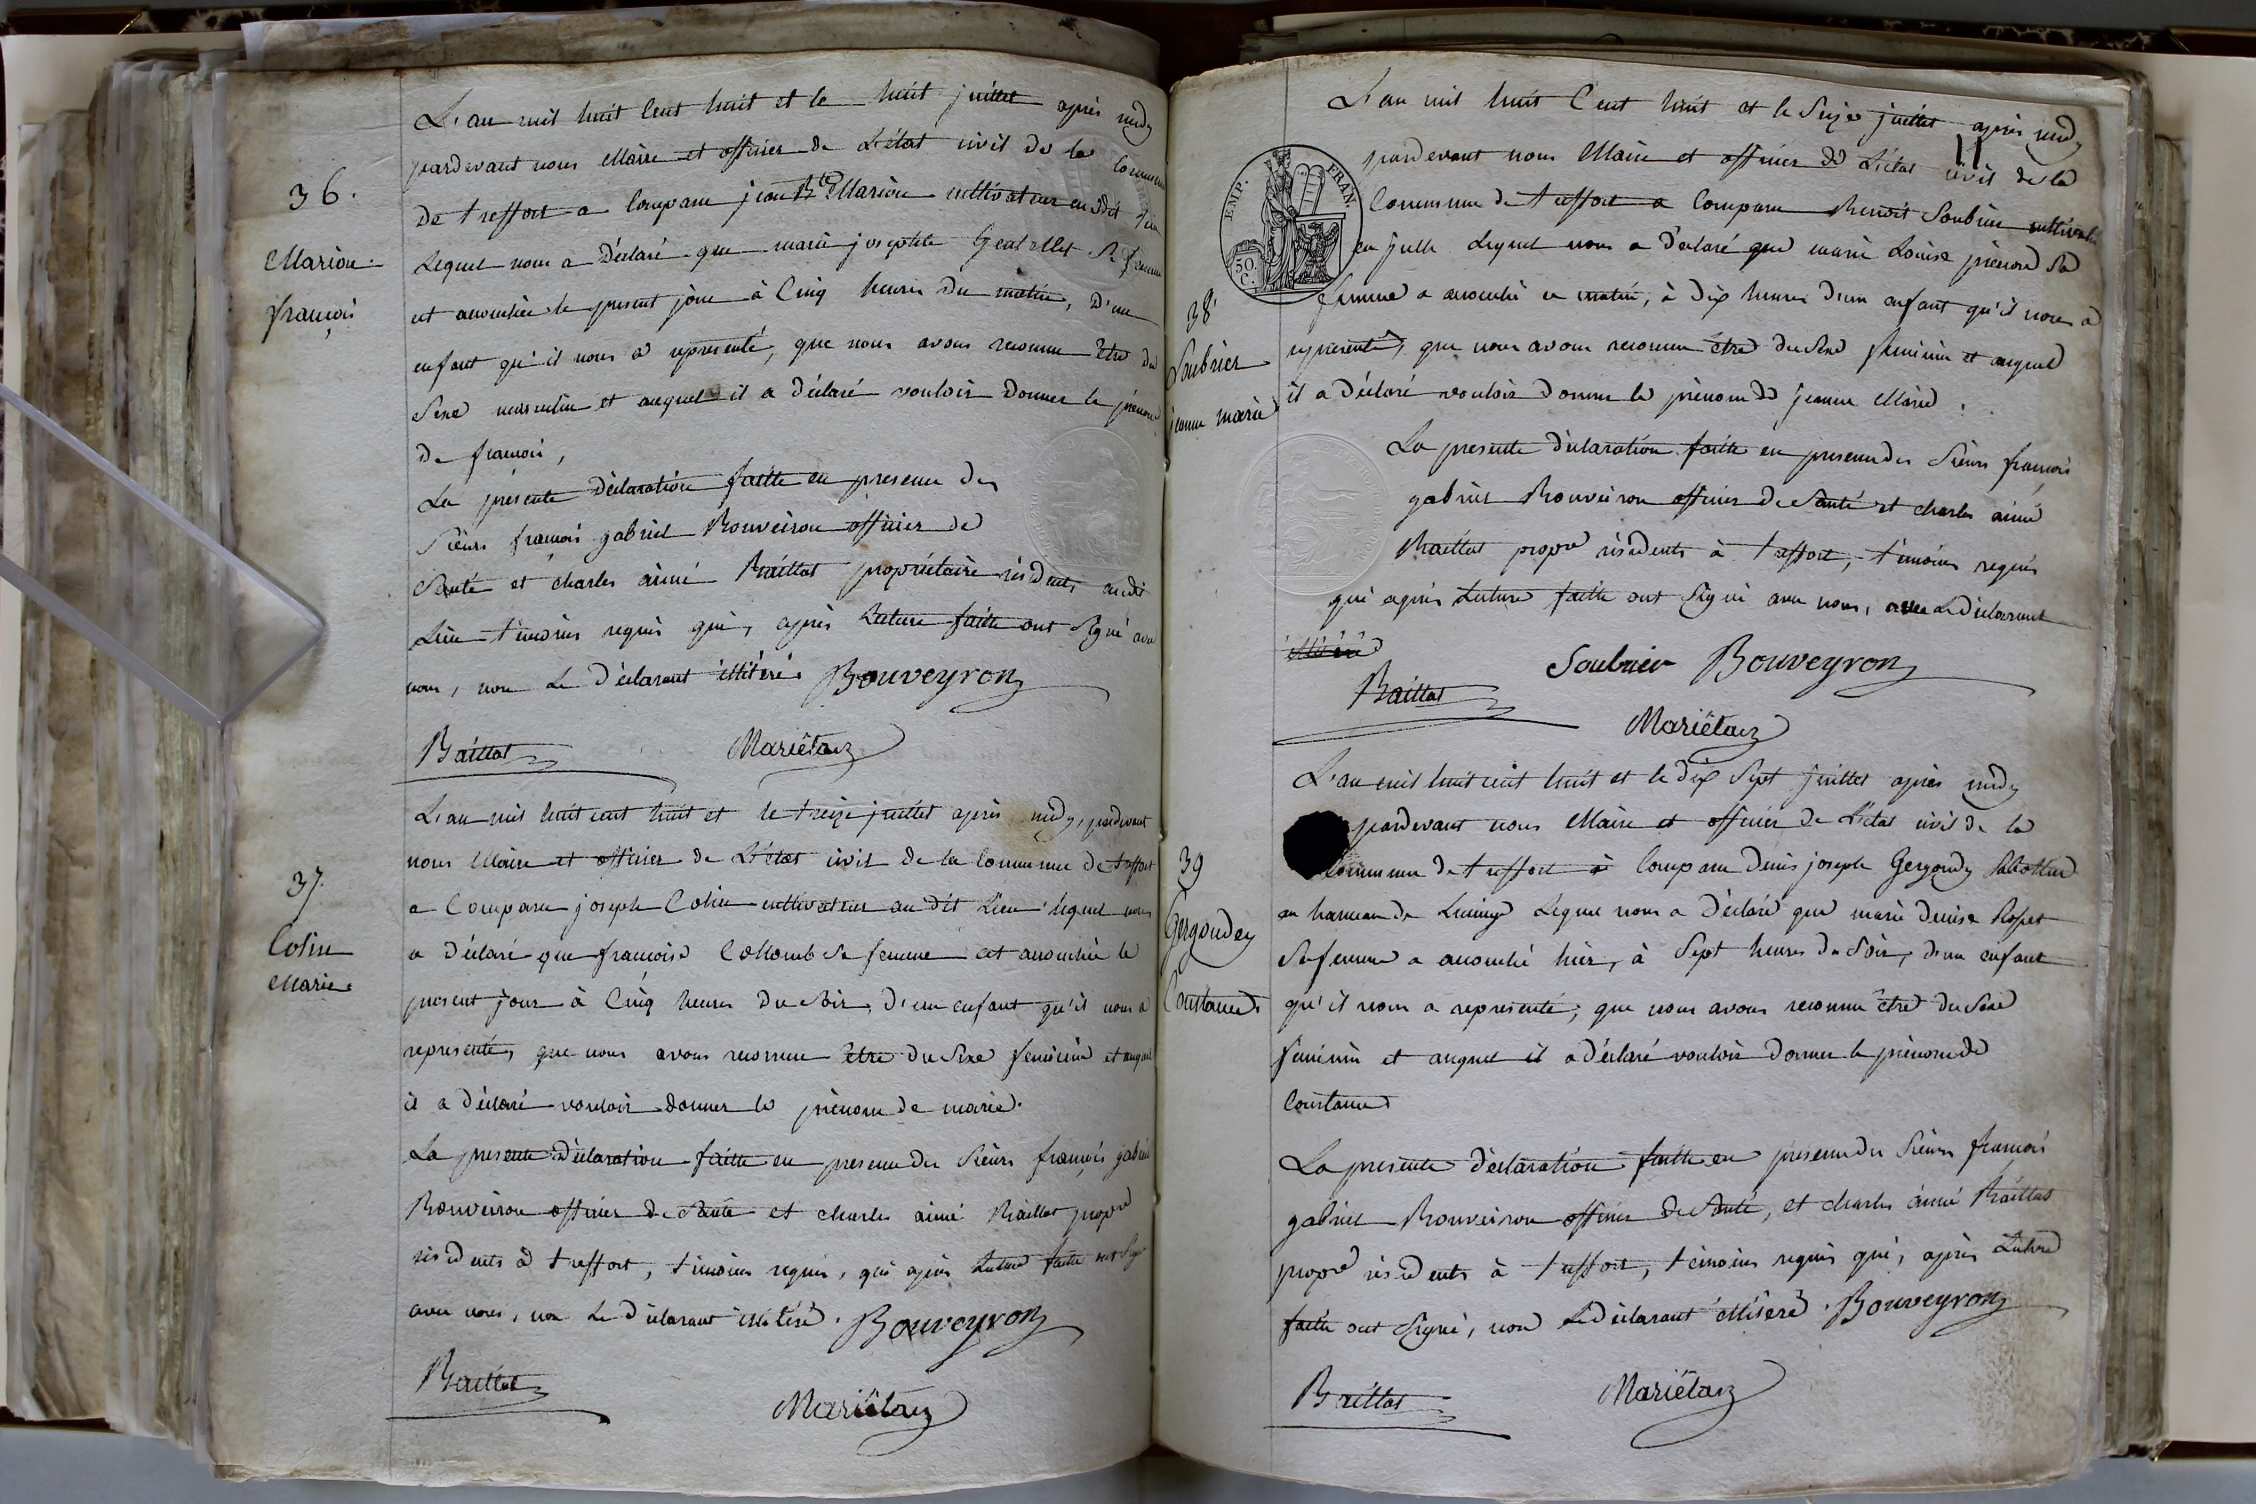 36.
Marion
françois
L'an mil huit Cent huit et le huit juillet après midy
pardevant nous Maire et officier de L'état civil de la Commune
de treffort a Comparu jean Bte Marion cultivateur audit lieu
Lequel nous a Déclaré que marie josephte Sa femme
est accouchée le present jour à Cinq heures du matin, D'un
enfant qu'il nous a representé, que nous avons reconnu être du
Sexe masculin et auquel il a déclaré vouloir Donner le prénom
de françois,
La présente déclaration faitte en presence des
Sieurs françois gabriel Bouveiron officier de
Santé et charles aimé Baillat propriétaire résidents audit
Lieu témoins requis qui, après Lecture faitte ont Signé avec
nous, non Le Déclarant illitéré. Bouveyron
Baillat Mariëtan
37.
Colin
Marie
L'an mil huit cent huit et le treize juillet après midy, pardevant
nous Maire et officier de L'état civil de la Commune de treffort
a Comparu joseph Colin cultivateur au dit Lieu lequel nous
a déclaré que françoise Collomb Sa femme est accouchée le
present jour à Cinq heures du Soir, d'un enfant qu'il nous a
representé, que nous avons reconnu être du Sexe feminin et auquel
il a déclaré vouloir donner le prénom de marie.
La presente Déclaration faitte en presence des Sieurs françois gabriel
Bouveiron officier de Santé et charles aimé Baillat propre
résidents à treffort, témoins requis, qui après Lecture faitte ont Signé
avec nous, non Le Déclarant illitéré. Bouveyron
Baillat Mariëtan
11
EMP. FRAN.
50.
C.
38.
Soubrier
jeanne marie
L'an mil huit Cent huit et le Seize juillet après midy
pardevant nous Maire et officier de L'état civil de la
Commune de treffort a Comparu Benoit Soubrier cultivateur
en Lequel nous a Déclaré que marie Louise prénom Sa
femme a accouché ce matin, à dix heures d'un enfant qu'il nous a
representé, que nous avons reconnu être du Sexe feminin et auquel
il a Déclaré vouloir Donner le prénom de jeanne Marie.
La presente déclaration faitte en presence des Sieurs françois
gabriel Bouveiron officier de Santé et charles aimé
Baillat propre résidents à treffort, témoins requis
qui après Lecture faitte ont Signé avec nous, avec Le Déclarant
illitéré
Soubrier Bouveyron
Baillat
Mariëtan
39
Gergondey
Constance
L'an mil huit cent huit et le dix Sept juillet après midy
pardevant nous Maire et officier de L'état civil de la
Commune de treffort a Comparu Denis joseph Gergondy Sabottier
au hameau de Lequel nous a Déclaré que marie Denise
Sa femme a accouché hier, à Sept heures du Soir, d'un enfant
qu'il nous a representé, que nous avons reconnu être du Sexe
feminin et auquel il a déclaré vouloir donner le prénom de
Constance
La presente déclaration faitte en presence des Sieurs françois
gabriel Bouveiron officier de Santé, et charles aimé Baillat
propre résidents à treffort, témoins requis qui, après Lecture
faitte ont Signé, non Le Déclarant illitéré. Bouveyron
Baillat Mariëtan